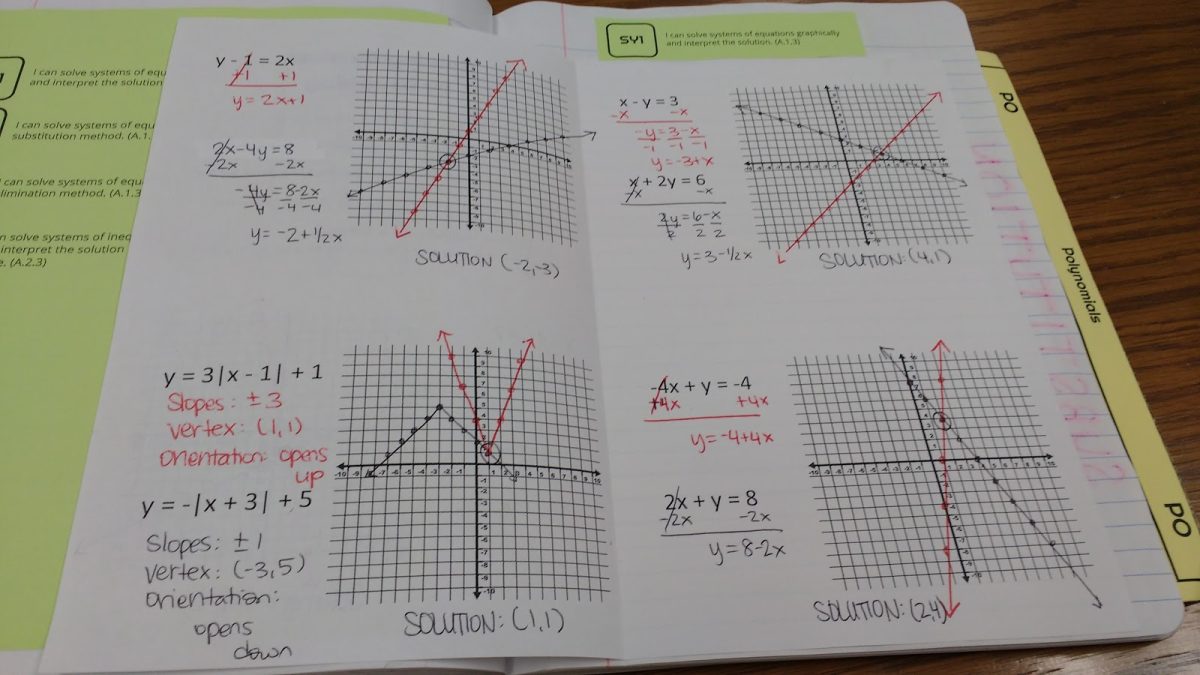 I can solve systems of equ
and interpret the solution
I can solve systems of equ
substitution method. (A.1.
can solve systems of equ
limination method. (A.1.3
n solve systems of ineq
interpret the solution
e. (A.2.3)
y - 1 = 2x
+1 +1
y = 2x+1
2x-4y = 8
-2x -2x
-4y = 8-2x
-4 -4 -4
y = -2+1/2x
SOLUTION (-2,-3)
y = 3|x - 1| + 1
Slopes: ±3
vertex: (1,1)
orientation: opens
up
y = -|x + 3| + 5
Slopes: ±1
vertex: (-3,5)
orientation:
opens
down
SOLUTION: (1,1)
SY1
I can solve systems of equations graphically
and interpret the solution. (A.1.3)
x - y = 3
-x -x
-y = 3-x
-1 -1 -1
y = -3+x
x + 2y = 6
-x -x
2y = 6-x
2 2 2
y = 3-1/2x
SOLUTION: (4,1)
-4x + y = -4
+4x +4x
y = -4+4x
2x + y = 8
-2x -2x
y = 8-2x
SOLUTION: (2,4)
PO
polynomials
PO